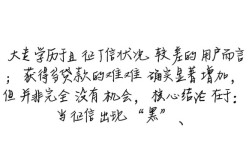 大专学历于且征信状况较差的用户而言
；获得多贷款的难难确实显著增加，
但并非完全没有机会，核心结论在于：
当征信出现“黑”、